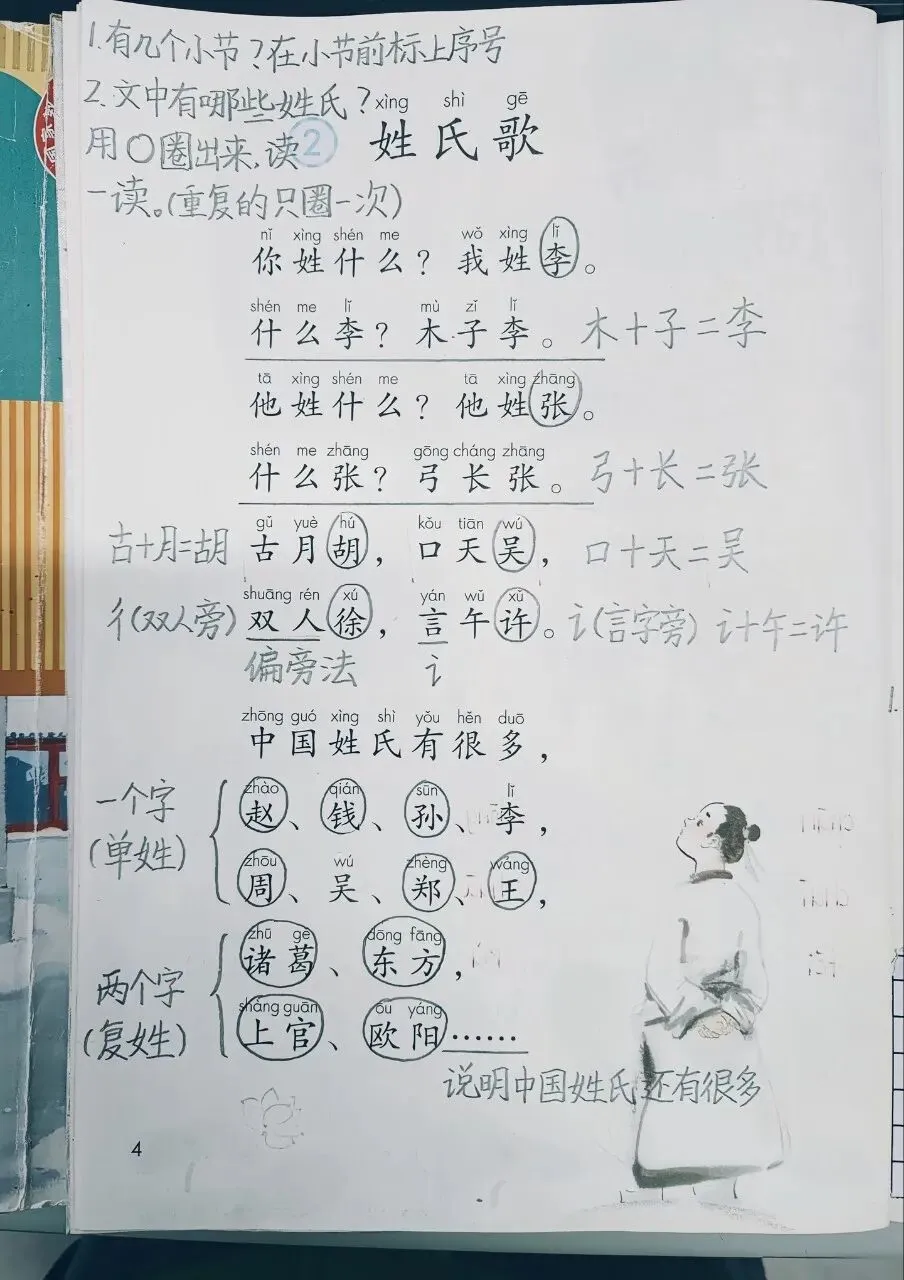 1.有几个小节?在小节前标上序号
2.文中有哪些姓氏?
用○圈出来,读
一读。(重复的只圈一次)
xìng shì gē
2 姓氏歌
nǐ xìng shén me wǒ xìng lǐ
你姓什么? 我姓李。
shén me lǐ mù zǐ lǐ
什么李? 木子李。 木+子=李
tā xìng shén me tā xìng zhāng
他姓什么? 他姓张。
shén me zhāng gōng cháng zhāng
什么张? 弓长张。 弓+长=张
gǔ yuè hú kǒu tiān wú
古+月=胡 古月胡, 口天吴, 口+天=吴
shuāng rén xú yán wǔ xǔ
彳(双人旁) 双人徐, 言午许。 讠(言字旁) 讠+午=许
偏旁法 讠
zhōng guó xìng shì yǒu hěn duō
中国姓氏有很多,
zhào qián sūn lǐ
一个字 赵、钱、孙、李,
(单姓)
zhōu wú zhèng wáng
周、吴、郑、王,
zhū gě dōng fāng
诸葛、东方,
两个字
(复姓)
shàng guān ōu yáng
上官、欧阳……
说明中国姓氏还有很多
4